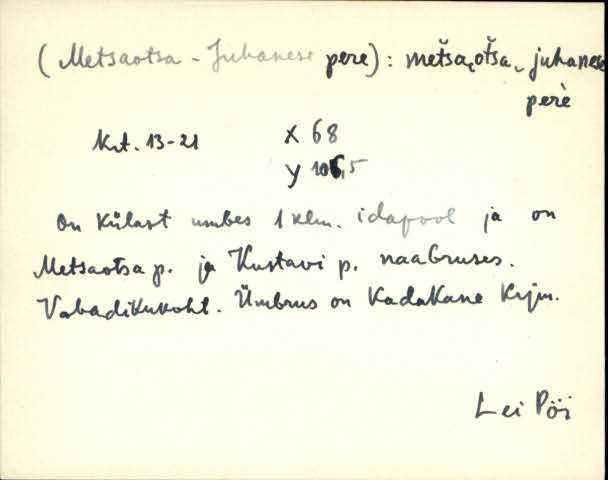 (Metsaotsa - Juhanese pere): metšaotša, juhanese
perè
Krt. 13-21 X 68
y 106,5
On külast umbes 1 klm. idapool ja on
Metsaotsa p. ja Kustavi p. naabruses.
Vabadikukoht. Ümbrus on Kadakane krjm.
Lei Pöi